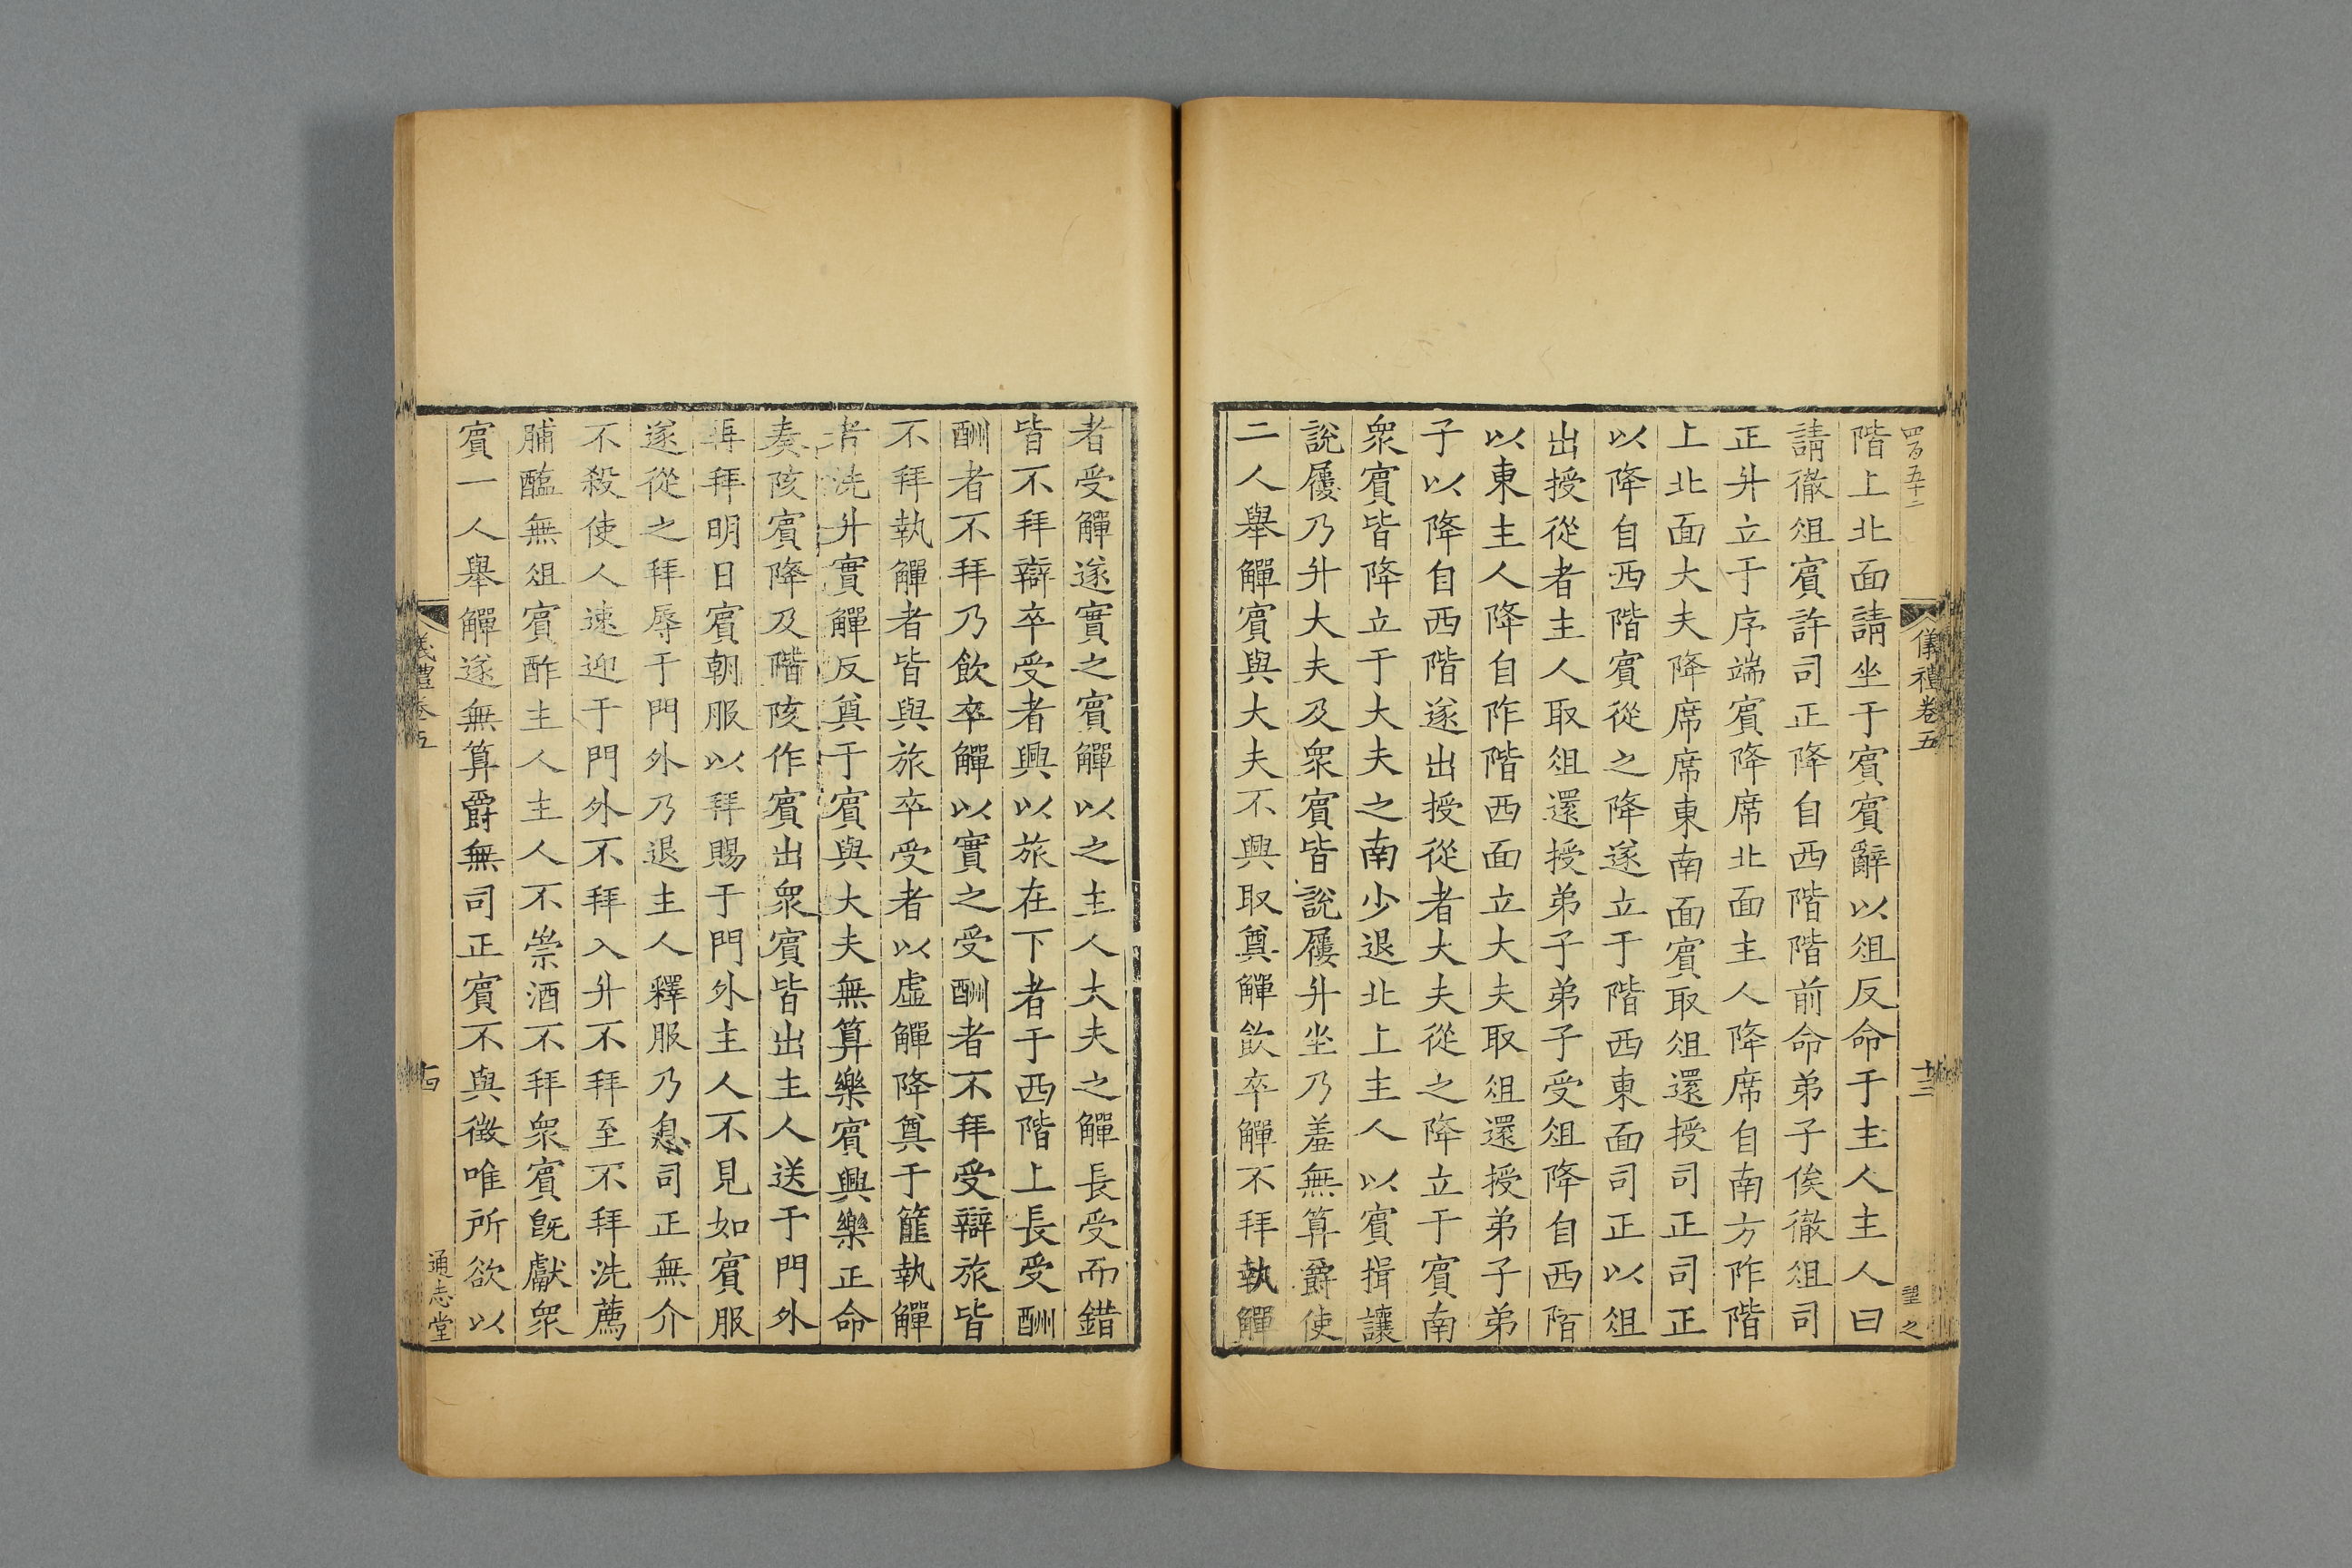 四百五十二
儀禮卷五
十三
望之
階上北面請坐于賔賔辭以俎反命于主人主人曰
請徹俎賔許司正降自西階階前命弟子俟徹俎司
正升立于序端賔降席北面主人降席自南方阼階
上北面大夫降席席東南面賔取俎還授司正司正
以降自西階賔從之降遂立于階西東面司正以俎
出授從者主人取俎還授弟子弟子受俎降自西階
以東主人降自阼階西面立大夫取俎還授弟子弟
子以降自西階遂出授從者大夫從之降立于賔南
衆賔皆降立于大夫之南少退北上主人以賔揖讓
說屨乃升大夫及衆賔皆說屨升坐乃羞無算爵使
二人舉觶賔與大夫不興取奠觶飲卒觶不拜執觶
者受觶遂實之賔觶以之主人大夫之觶長受而錯
皆不拜辯卒受者興以旅在下者于西階上長受酬
酬者不拜乃飲卒觶以實之受酬者不拜受辯旅皆
不拜執觶者皆與旅卒受者以虛觶降奠于篚執觶
者洗升實觶反奠于賔與大夫無算樂賔興樂正命
奏陔賔降及階陔作賔出衆賔皆出主人送于門外
再拜明日賔朝服以拜賜于門外主人不見如賔服
遂從之拜辱于門外乃退主人釋服乃息司正無介
不殺使人速迎于門外不拜入升不拜至不拜洗薦
脯醢無俎賔酢主人主人不崇酒不拜衆賔旣獻衆
賔一人舉觶遂無算爵無司正賔不與徵唯所欲以
儀禮卷五
十四
通志堂